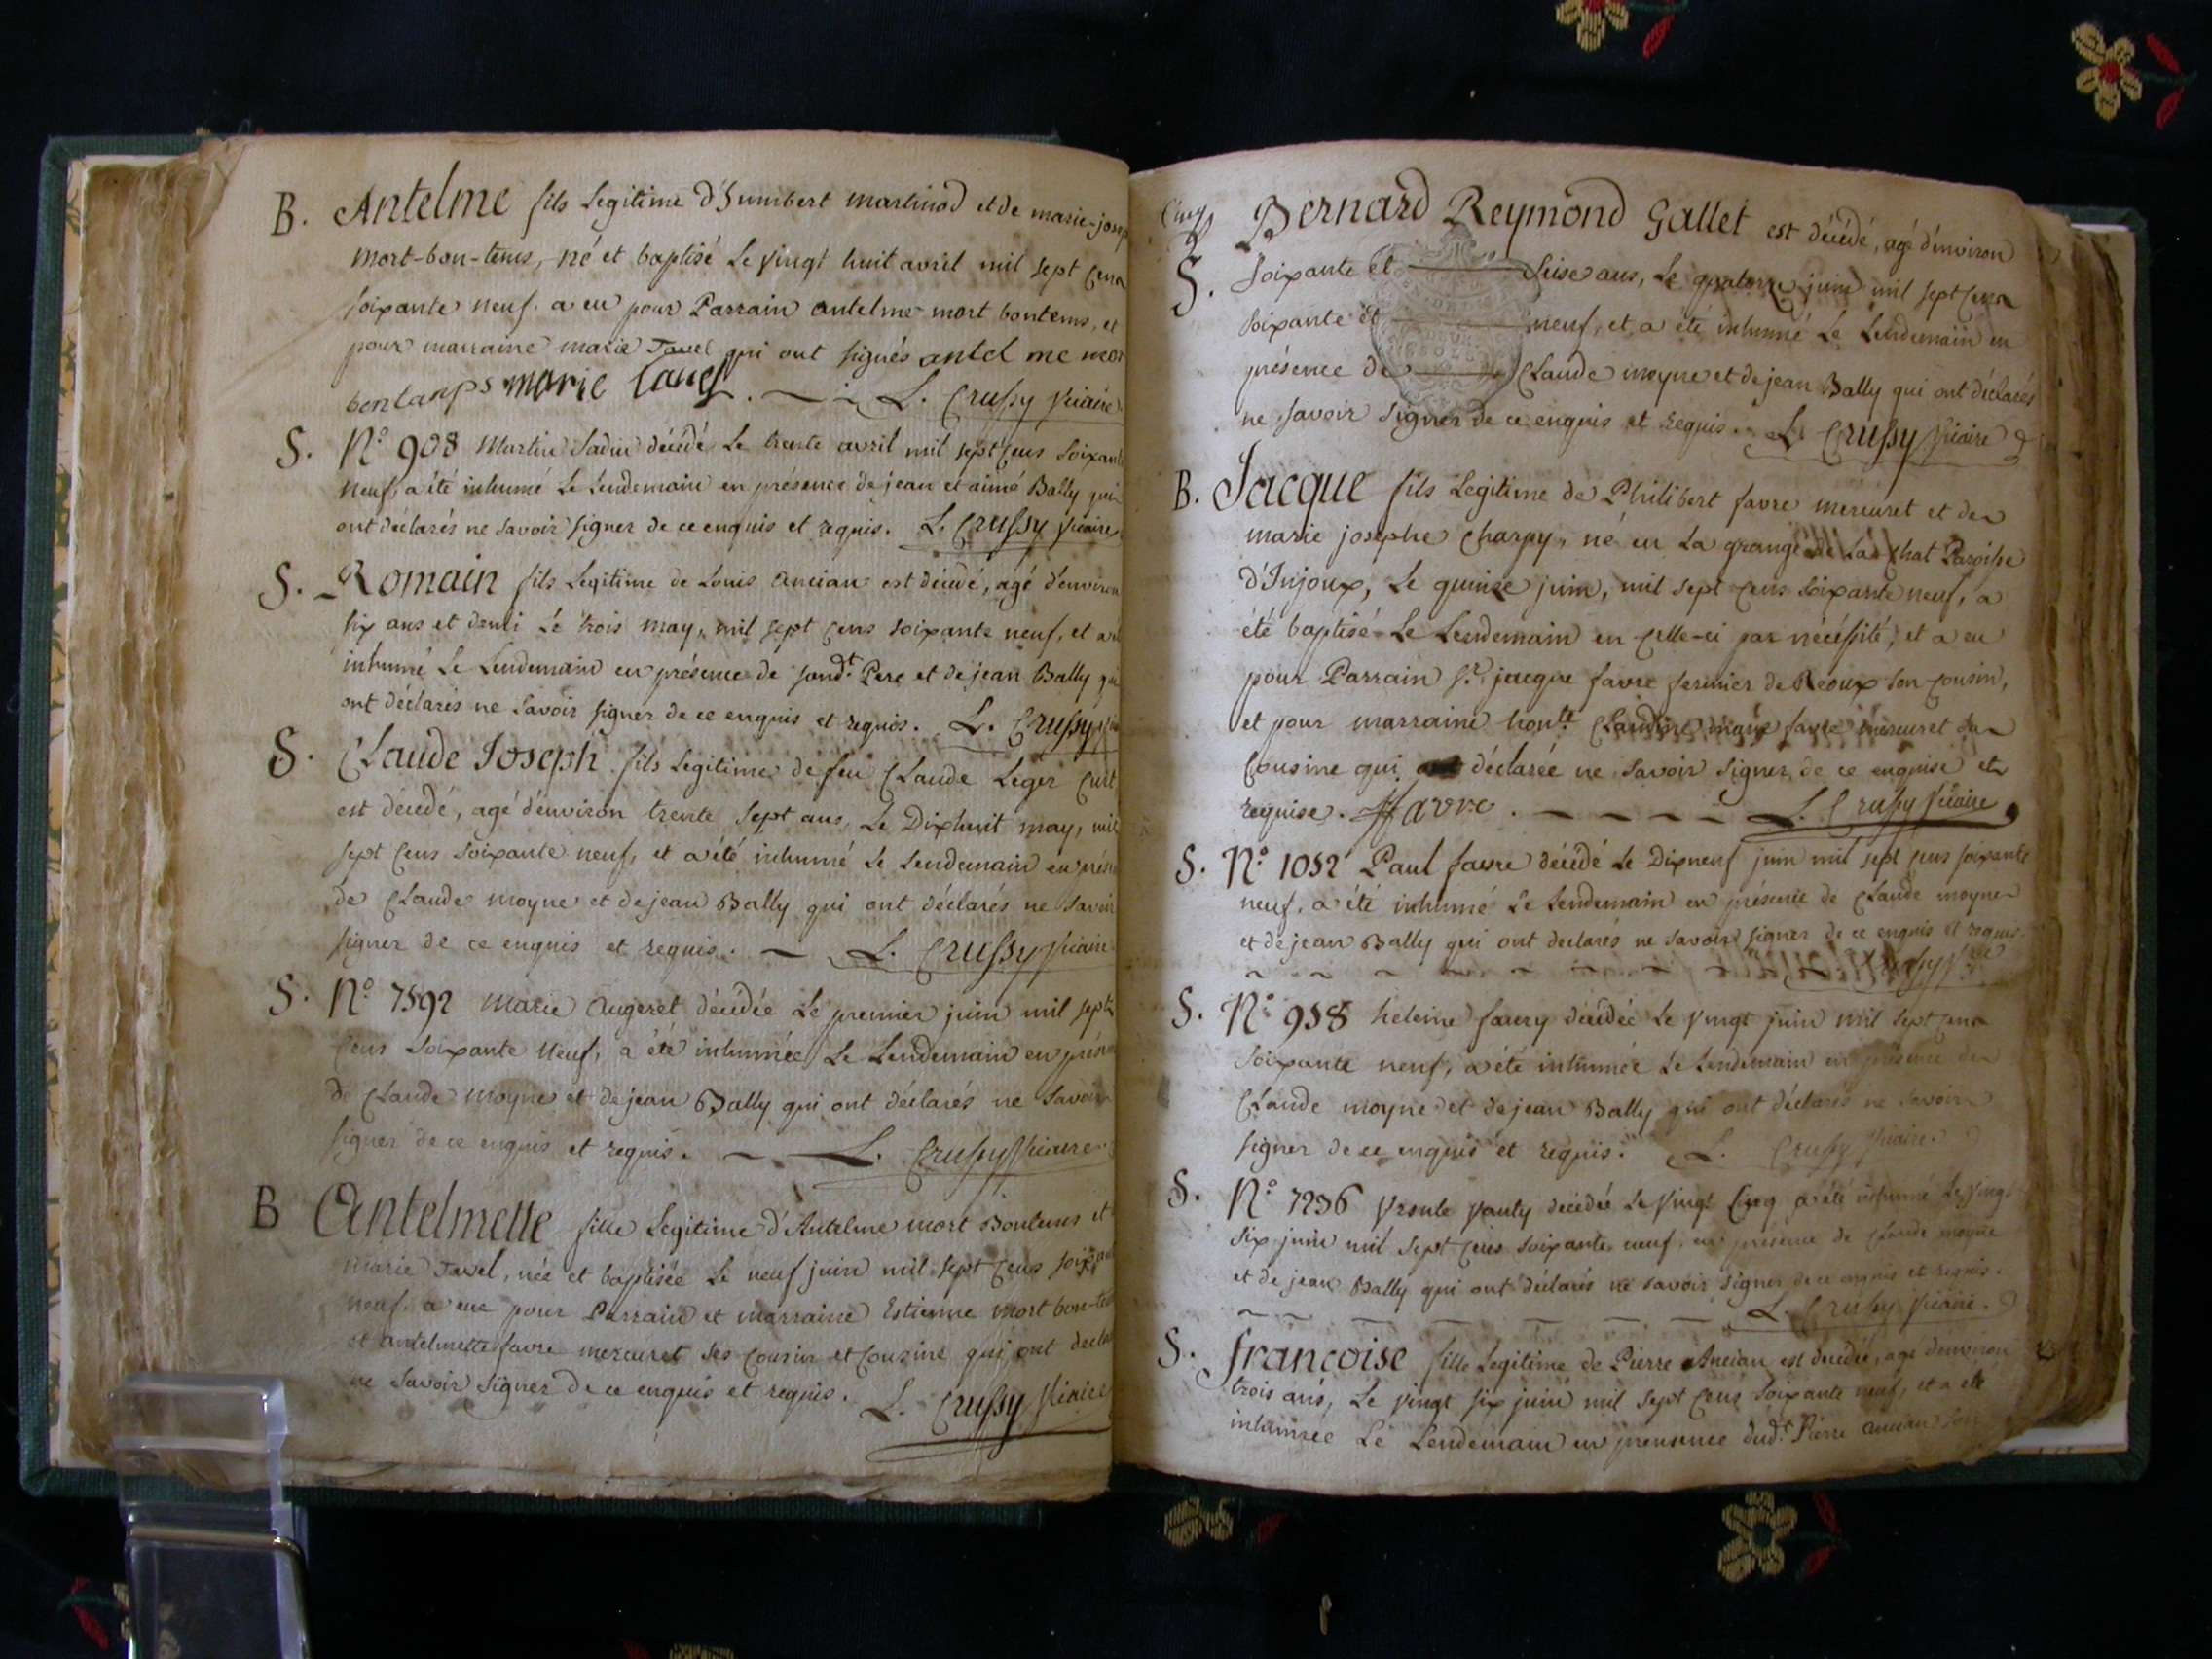 B. Antelme fils Legitime d'humbert martinod et de marie-josep
mort-bon-tems, né et baptisé Le vingt huit avril mil sept cens
soixante neuf. a eu pour Parrain antelme mort bontems, et
pour marraine marie Tavel qui ont signés antel me mor
bontamps marie tavel. L. Crussy Vicaire
S. N.o 908 Martin Sadin décédé Le trente avril mil sept cens soixante
neuf, a été inhumé Le Lendemain en présence de jean et aimé Bally qui
ont déclarés ne savoir signer de ce enquis et requis. L. Crussy Vicaire
S. Romain fils Legitime de Louis Ancian est décédé, agé d'environ
six ans et demi Le trois may, mil sept cens soixante neuf, et a été
inhumé Le Lendemain en présence de sond.t Pere et de jean Bally qui
ont déclarés ne savoir signer de ce enquis et requis. L. Crussy
S. Claude Joseph fils Legitime de feu Claude Leger Curt
est décédé, agé d'environ trente sept ans, Le Dixhuit may, mil
sept cens soixante neuf, et a été inhumé Le Lendemain en prése
de Claude moyne et de jean Bally qui ont déclarés ne savoir
signer de ce enquis et requis. L. Crussy Vicaire
S. N.o 7592 marie Augeret décédée Le premier juin mil sept
cens soixante neuf, a été inhumée Le Lendemain en prése
de Claude moyne et de jean Bally qui ont déclarés ne savoir
signer de ce enquis et requis. L. Crussy Vicaire
B Antelmette fille Legitime d'Antelme mort Bontems et
marie Tavel, née et baptisée Le neuf juin mil sept cens soixan
neuf. a eue pour Parrain et marraine Estienne mort bon-tem
et antelmette favre mercuret ses Cousin et Cousine qui ont decla
ne savoir signer de ce enquis et requis. L. Crussy Vicaire
Cinq
S. Bernard Reymond Gallet est décédé, agé d'environ
soixante et seise ans, Le quatorze juin mil sept cens
soixante et neuf, et a été inhumé Le Lendemain en
présence de Claude moyne et de jean Bally qui ont déclarés
ne savoir signer de ce enquis et requis. L. Crussy Vicaire
B. Jacque fils Legitime de Philibert favre mercuret et de
marie josephe Charpy, né en La grange de La Chat Paroisse
d'Injoux, Le quinze juin, mil sept cens soixante neuf, a
été baptisé Le Lendemain en celle-ci par nécéssité, et a eu
pour Parrain S.r jacque favre fermier de Reoux son Cousin,
et pour marraine hon.te Claudine marie favre mercuret sa
Cousine qui a déclarée ne savoir signer de ce enquise et
requise. favre. L. Crussy Vicaire
S. N.o 1052 Paul favre décédé Le Dixneuf juin mil sept cens soixante
neuf, a été inhumé Le Lendemain en présence de Claude moyne
et de jean Bally qui ont declarés ne savoir signer de ce enquis et requis.
S. N.o 958 heleine favry décédée Le vingt juin mil sept cens
soixante neuf, a été inhumée Le Lendemain en présence de
Claude moyne et de jean Bally qui ont déclarés ne savoir
signer de ce enquis et requis. L. Crussy Vicaire
S. N.o 7236 Vrsule Vauty décédée Le vingt Cinq a été inhumé Le vingt
six juin mil sept cens soixante neuf en présence de Claude moyne
et de jean Bally qui ont déclarés ne savoir signer de ce enquis et requis.
L. Crussy Vicaire.
S. francoise fille Legitime de Pierre Ancian est décédée, agé d'environ
trois ans, Le vingt six juin mil sept cens soixante neuf, et a été
inhumée Le Lendemain en presence dud.t Pierre ancian